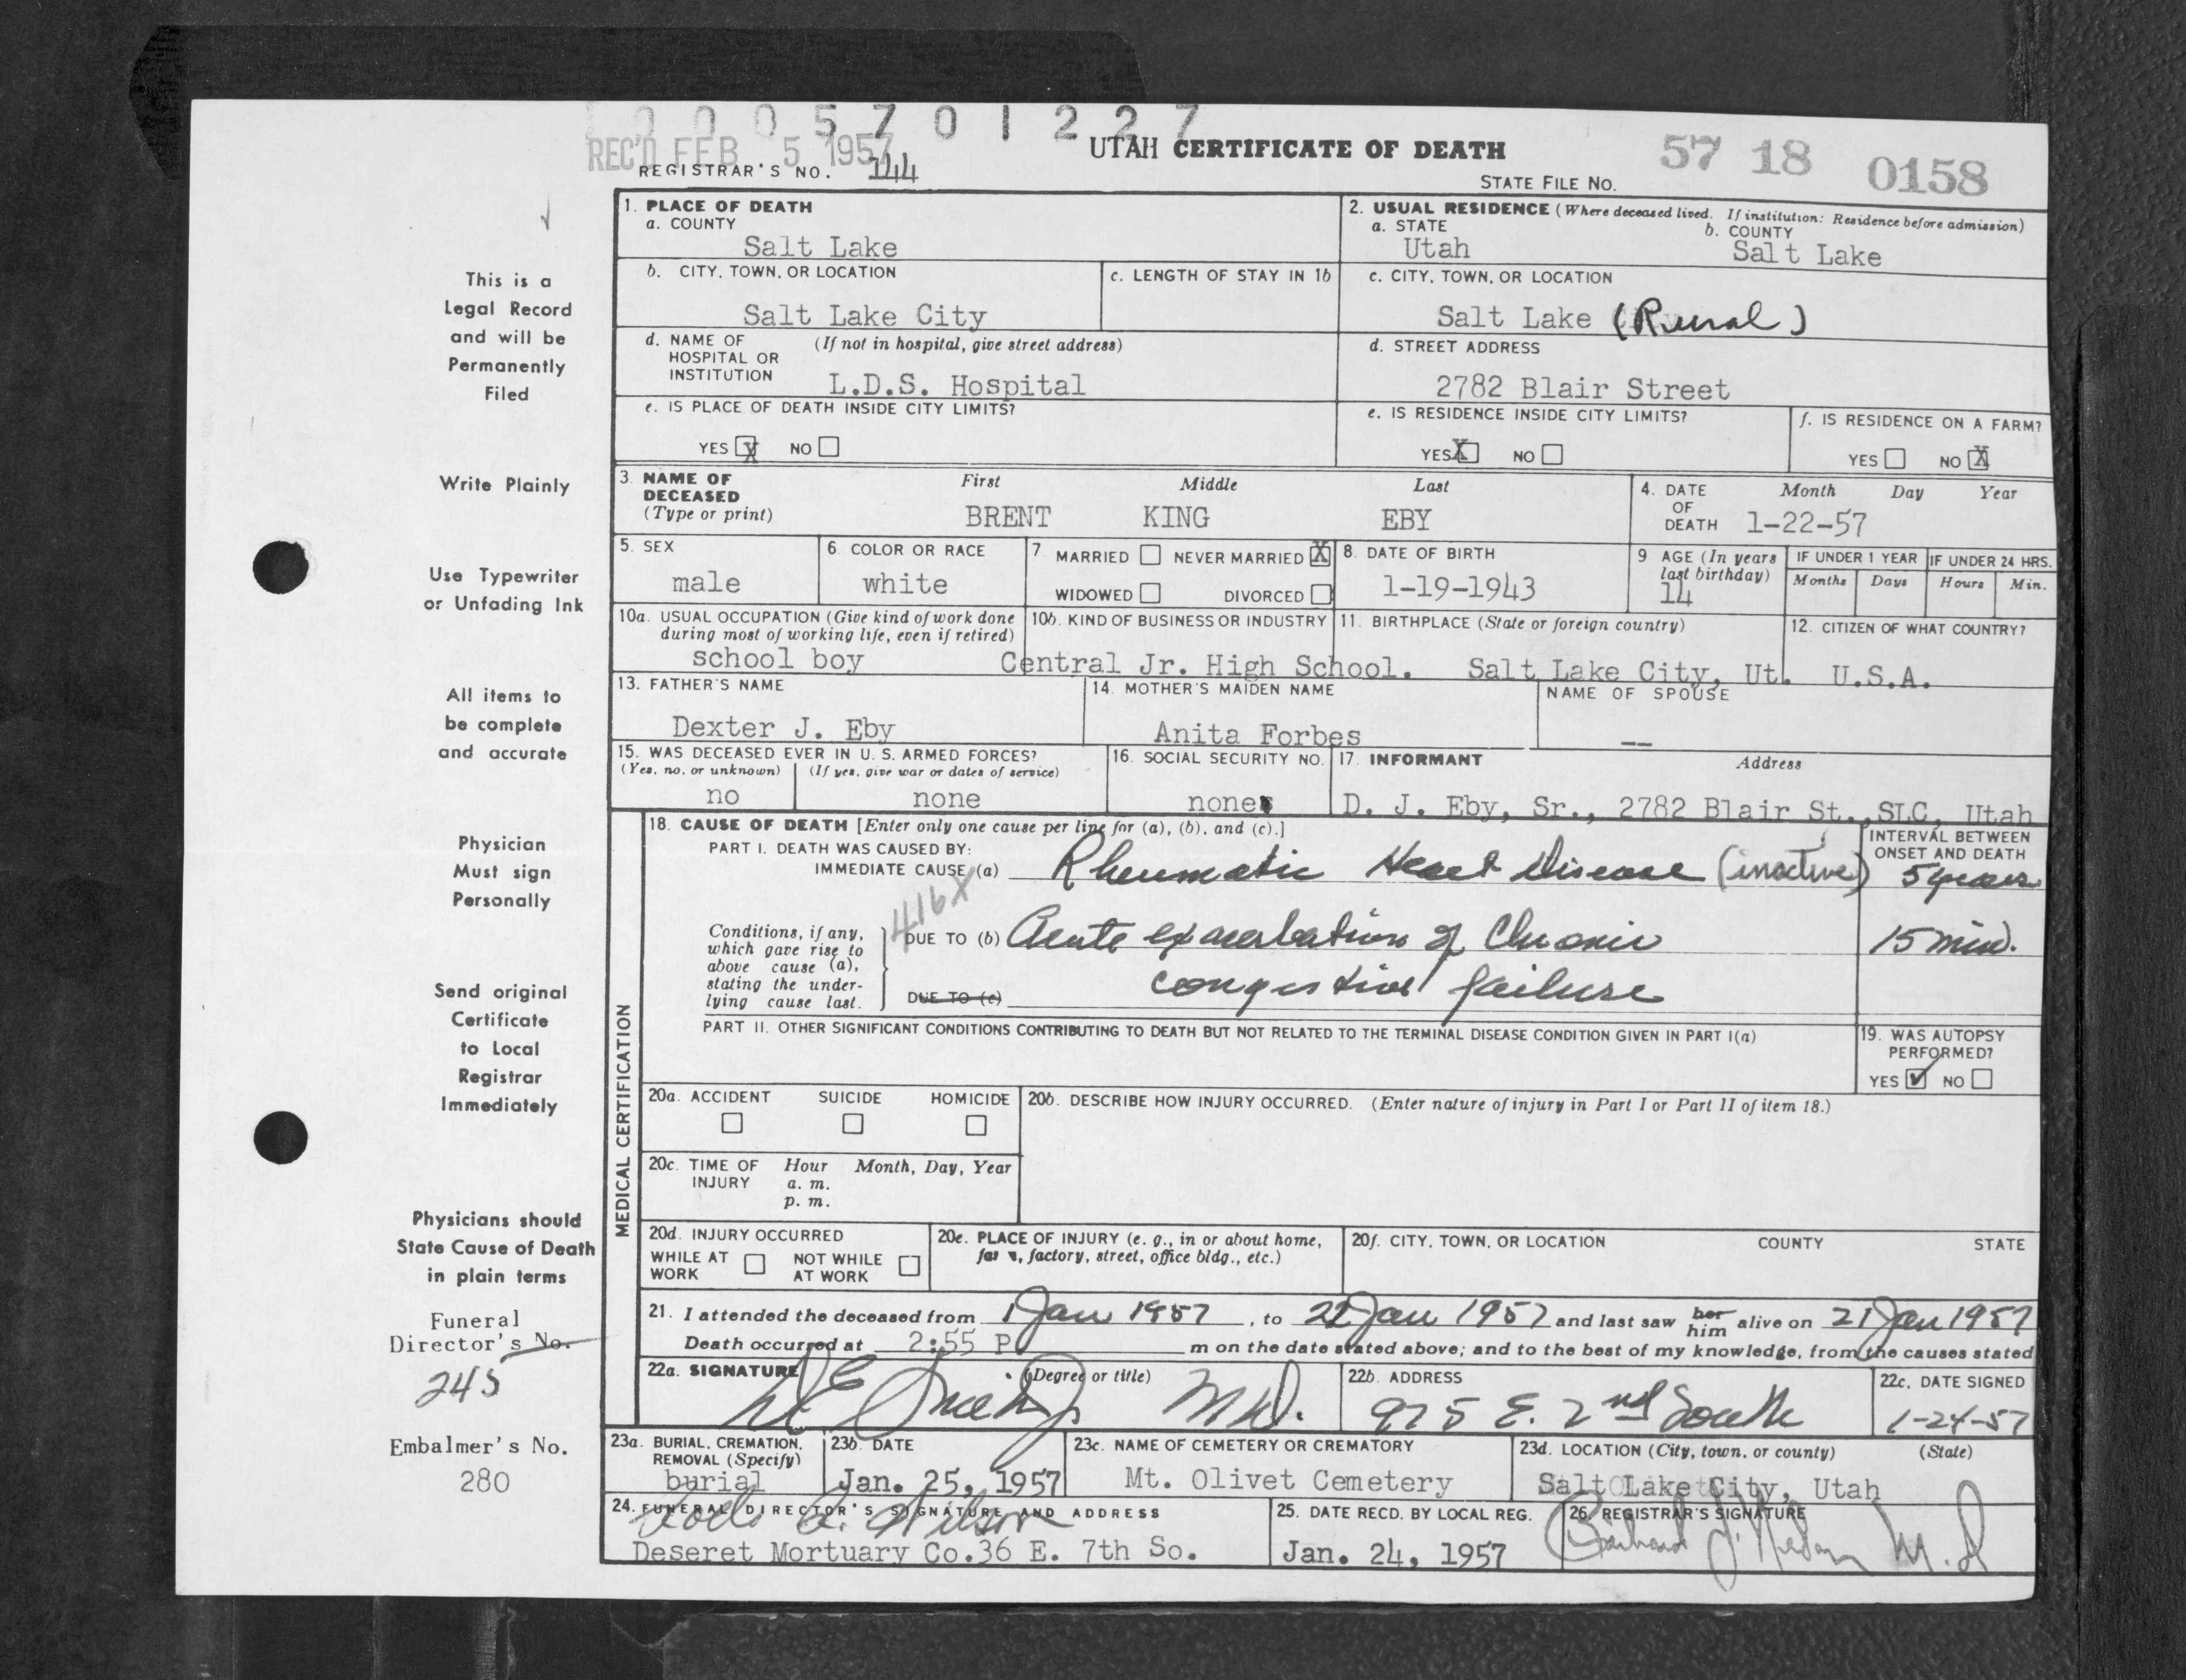 0005701227
REC'D FEB 5 1957
UTAH CERTIFICATE OF DEATH
57 18 0158
REGISTRAR'S NO. 144
STATE FILE NO.
This is a
Legal Record
and will be
Permanently
Filed
Write Plainly
Use Typewriter
or Unfading Ink
All items to
be complete
and accurate
Physician
Must sign
Personally
Send original
Certificate
to Local
Registrar
Immediately
Physicians should
State Cause of Death
in plain terms
Funeral
Director's No.
245
Embalmer's No.
280
1. PLACE OF DEATH
a. COUNTY
Salt Lake
2. USUAL RESIDENCE (Where deceased lived. If institution: Residence before admission)
a. STATE
Utah
b. COUNTY
Salt Lake
b. CITY, TOWN, OR LOCATION
Salt Lake City
c. LENGTH OF STAY IN 1b
c. CITY, TOWN, OR LOCATION
Salt Lake (Rural)
d. NAME OF (If not in hospital, give street address)
HOSPITAL OR
INSTITUTION
L.D.S. Hospital
d. STREET ADDRESS
2782 Blair Street
e. IS PLACE OF DEATH INSIDE CITY LIMITS?
YES X NO
e. IS RESIDENCE INSIDE CITY LIMITS?
YES X NO
f. IS RESIDENCE ON A FARM?
YES NO X
3. NAME OF
DECEASED
(Type or print)
First Middle Last
BRENT KING EBY
4. DATE
OF
DEATH
Month Day Year
1-22-57
5. SEX
male
6. COLOR OR RACE
white
7. MARRIED NEVER MARRIED X
WIDOWED DIVORCED
8. DATE OF BIRTH
1-19-1943
9 AGE (In years
last birthday)
14
IF UNDER 1 YEAR
Months Days
IF UNDER 24 HRS.
Hours Min.
10a. USUAL OCCUPATION (Give kind of work done
during most of working life, even if retired)
school boy
10b. KIND OF BUSINESS OR INDUSTRY
Central Jr. High School.
11. BIRTHPLACE (State or foreign country)
Salt Lake City, Ut.
12. CITIZEN OF WHAT COUNTRY?
U.S.A.
13. FATHER'S NAME
Dexter J. Eby
14. MOTHER'S MAIDEN NAME
Anita Forbes
NAME OF SPOUSE
--
15. WAS DECEASED EVER IN U. S. ARMED FORCES?
(Yes, no, or unknown) (If yes, give war or dates of service)
no none
16. SOCIAL SECURITY NO.
none
17. INFORMANT Address
D. J. Eby, Sr., 2782 Blair St., SLC, Utah
MEDICAL CERTIFICATION
18. CAUSE OF DEATH [Enter only one cause per line for (a), (b), and (c).]
INTERVAL BETWEEN
ONSET AND DEATH
PART I. DEATH WAS CAUSED BY:
IMMEDIATE CAUSE (a) Rheumatic Heart Disease (inactive) 5 years
416X
Conditions, if any,
which gave rise to
above cause (a),
stating the under-
lying cause last.
DUE TO (b) Acute exacerbation of Chronic 15 min.
DUE TO (c) congestive failure
PART II. OTHER SIGNIFICANT CONDITIONS CONTRIBUTING TO DEATH BUT NOT RELATED TO THE TERMINAL DISEASE CONDITION GIVEN IN PART I(a)
19. WAS AUTOPSY
PERFORMED?
YES ✓ NO
20a. ACCIDENT SUICIDE HOMICIDE
20b. DESCRIBE HOW INJURY OCCURRED. (Enter nature of injury in Part I or Part II of item 18.)
20c. TIME OF Hour Month, Day, Year
INJURY a. m.
p. m.
20d. INJURY OCCURRED
WHILE AT NOT WHILE
WORK AT WORK
20e. PLACE OF INJURY (e. g., in or about home,
farm, factory, street, office bldg., etc.)
20f. CITY, TOWN, OR LOCATION COUNTY STATE
21. I attended the deceased from 1 Jan 1957, to 22 Jan 1957 and last saw her him alive on 21 Jan 1957
Death occurred at 2:55 P m on the date stated above; and to the best of my knowledge, from the causes stated
22a. SIGNATURE (Degree or title)
M.D.
22b. ADDRESS
975 E. 2nd South
22c. DATE SIGNED
1-24-57
23a. BURIAL, CREMATION,
REMOVAL (Specify)
burial
23b. DATE
Jan. 25, 1957
23c. NAME OF CEMETERY OR CREMATORY
Mt. Olivet Cemetery
23d. LOCATION (City, town, or county) (State)
Salt Lake City, Utah
24. FUNERAL DIRECTOR'S SIGNATURE AND ADDRESS
Deseret Mortuary Co. 36 E. 7th So.
25. DATE RECD. BY LOCAL REG.
Jan. 24, 1957
26. REGISTRAR'S SIGNATURE
M.D